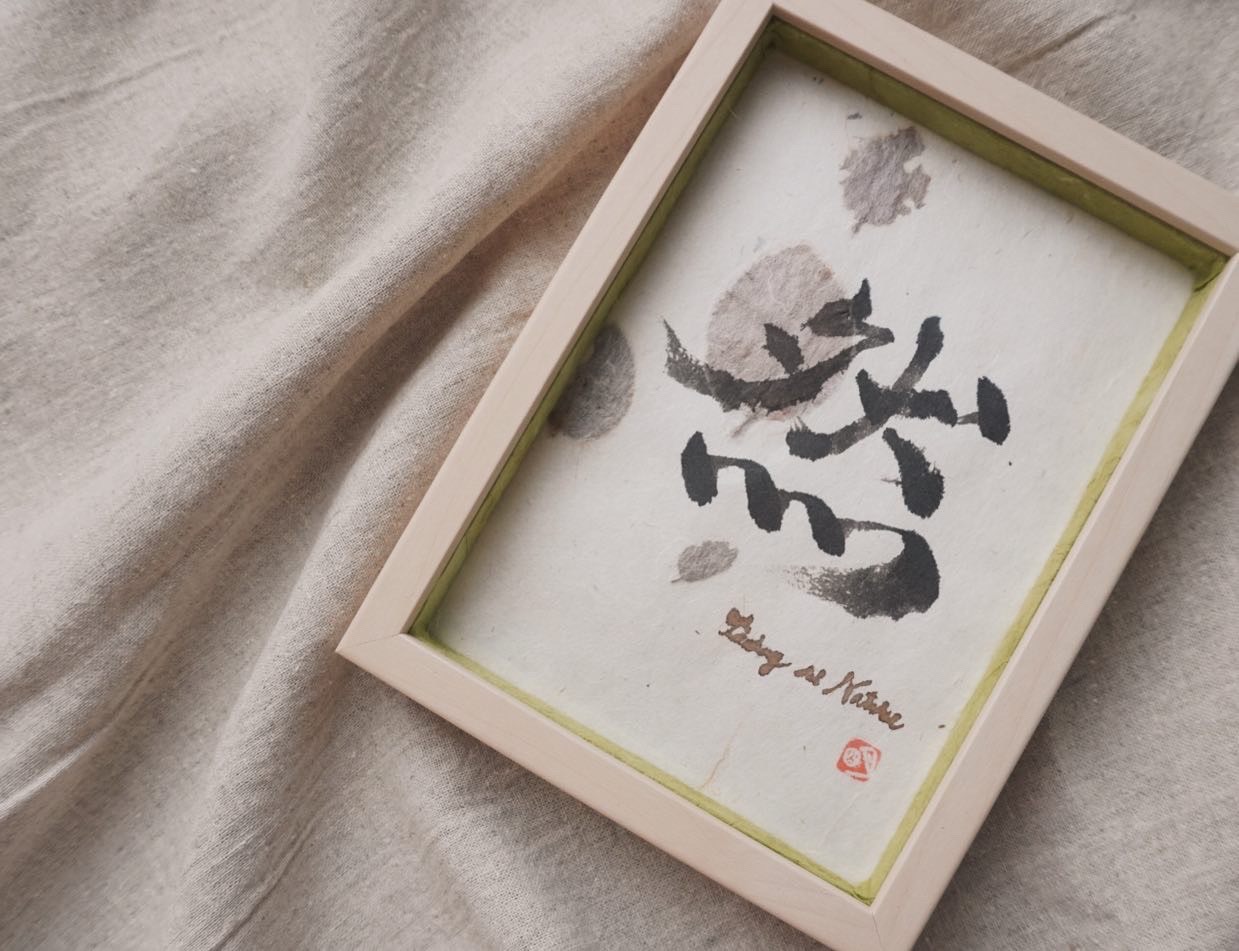 然
Living Nature